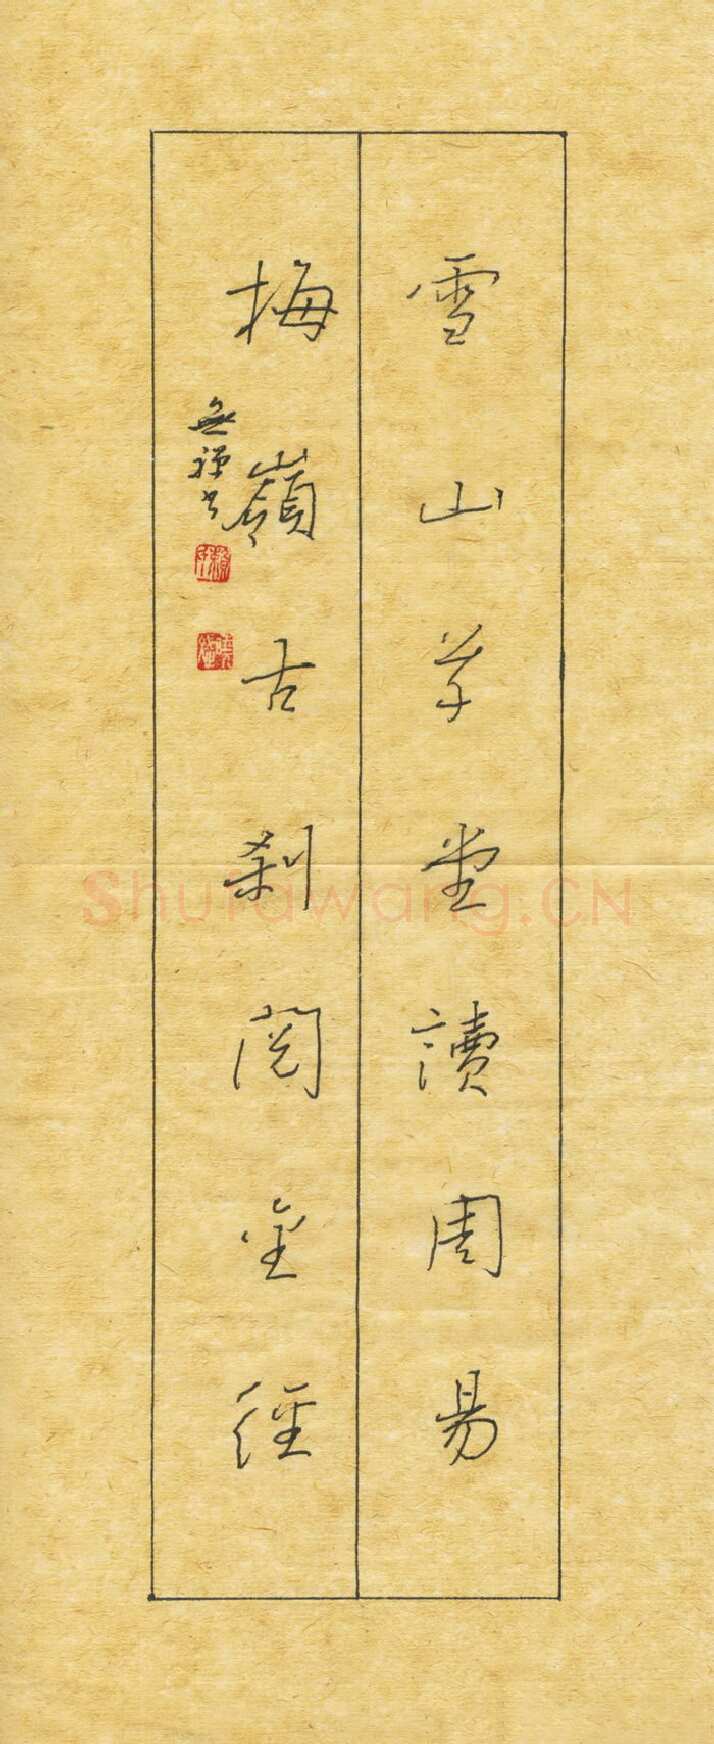 雪山草堂讀周易
梅嶺古刹閱金經
無禪书
Shufawang.CN